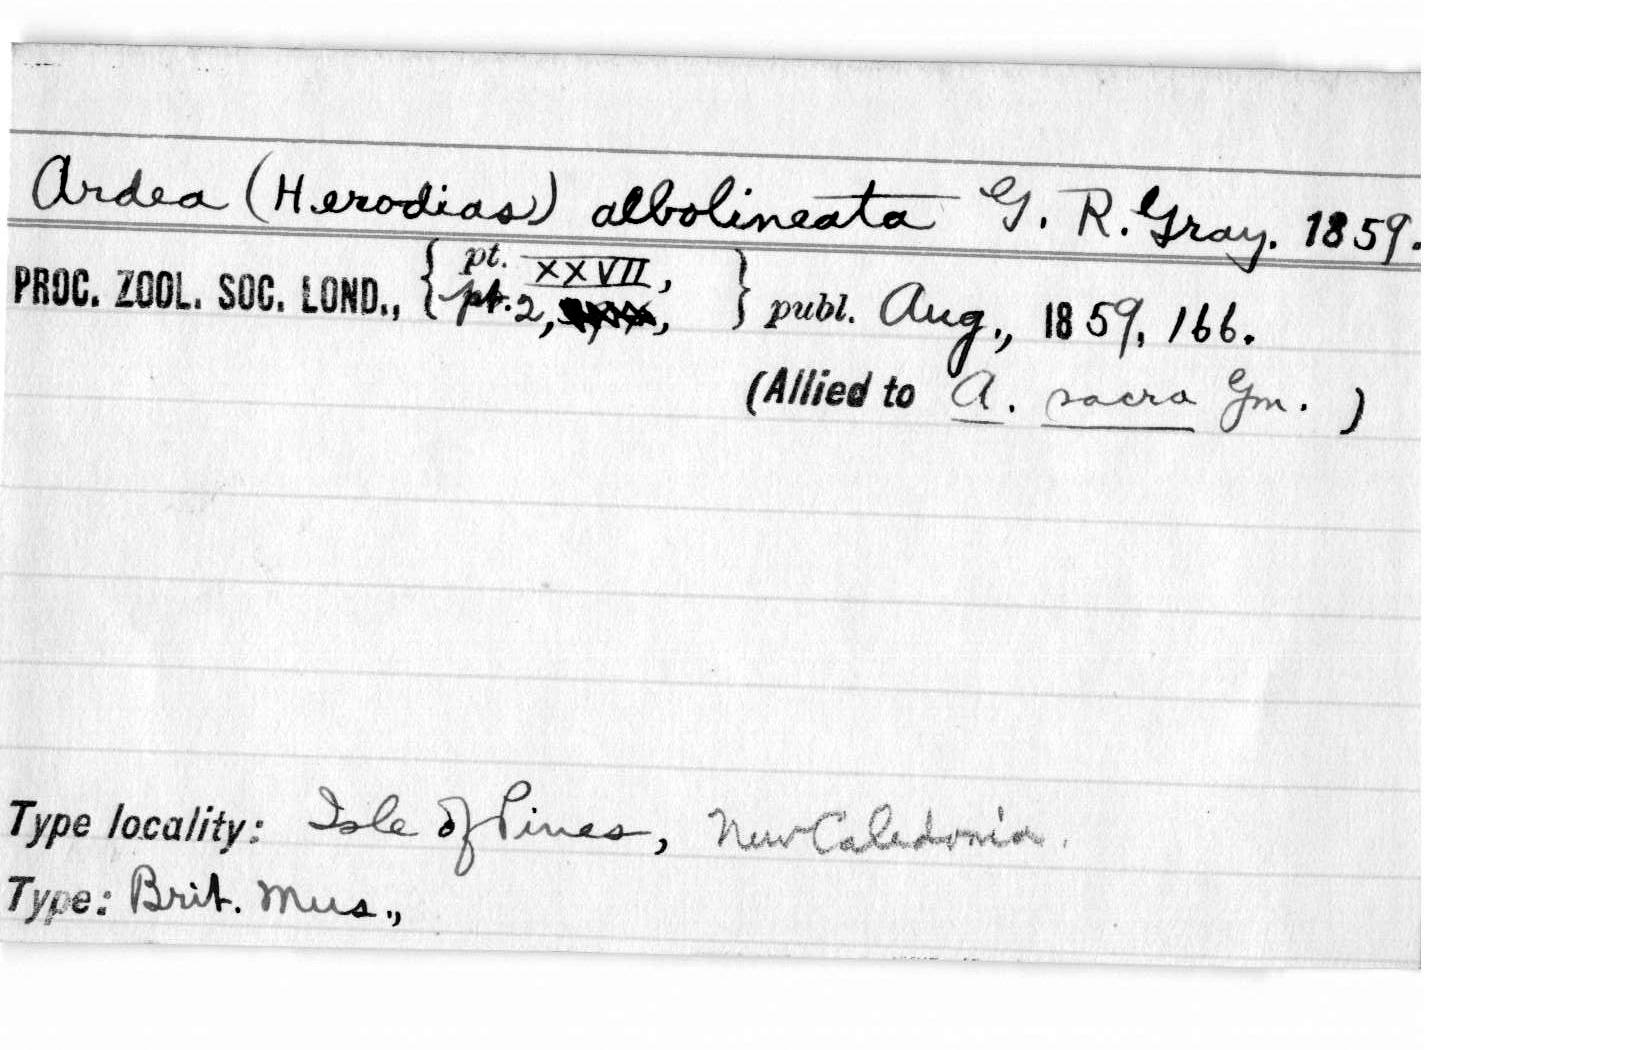 Ardea (Herodias) albolineata G. R. Gray. 1859.
PROC. ZOOL. SOC. LOND., { pt. XXVII, pt. 2, } publ. Aug., 1859, 166.
(Allied to A. sacra Gm. )
Type locality: Isle of Pines, New Caledonia.
Type: Brit. Mus.,